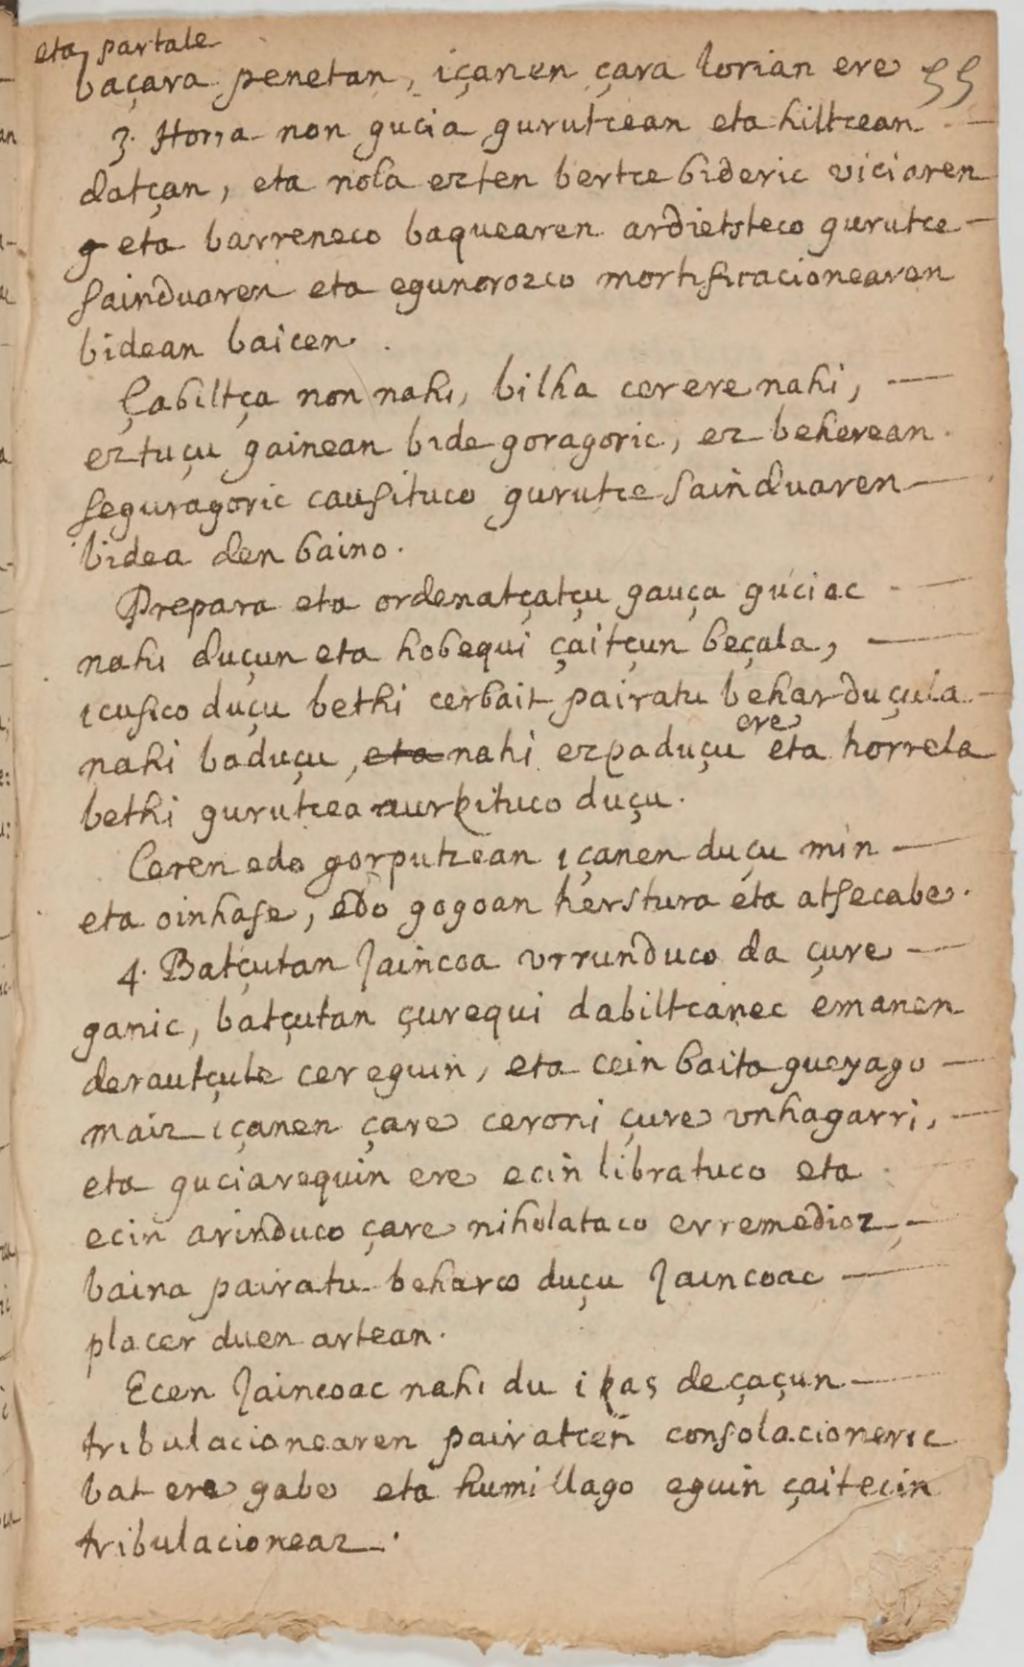 eta partale
baçara penetan, içanen çara lorian ere 55
3. Horra non gucia gurutcean eta hiltcean
datçan, eta nola ezten bertce bideric viciaren
eta barreneco baquearen ardietsteco gurutce
sainduaren eta egunorozco mortificacionearen
bidean baicen.
Çabiltça non nahi, bilha cer ere nahi,
eztuçu gainean bide goragoric, ez beherean
seguragoric causituco gurutce sainduaren
bidea den baino.
Prepara eta ordenatçatçu gauça guciac
nahi duçun eta hobequi çaitçun beçala,
icusico duçu bethi cerbait pairatu behar duçula
nahi baduçu, eta nahi ezpaduçu ere eta horrela
bethi gurutcea aurkituco duçu.
Ceren edo gorputzean içanen duçu min
eta oinhase, edo gogoan herstura eta atsecabe.
4. Batçutan Jaincoa urrunduco da çure
ganic, batçutan çurequi dabiltcanec emanen
derautçute cer eguin, eta cein baita gueyago
maiz içanen çare ceroni çure unhagarri,
eta guciarequin ere ecin libratuco eta
ecin arinduco çare niholataco erremedioz,
baina pairatu beharco duçu Jaincoac
placer duen artean.
Ecen Jaincoac nahi du ikas deçaçun
tribulacionearen pairatcen consolacioneric
bat ere gabe eta humillago eguin çaitecin
tribulacioneaz.